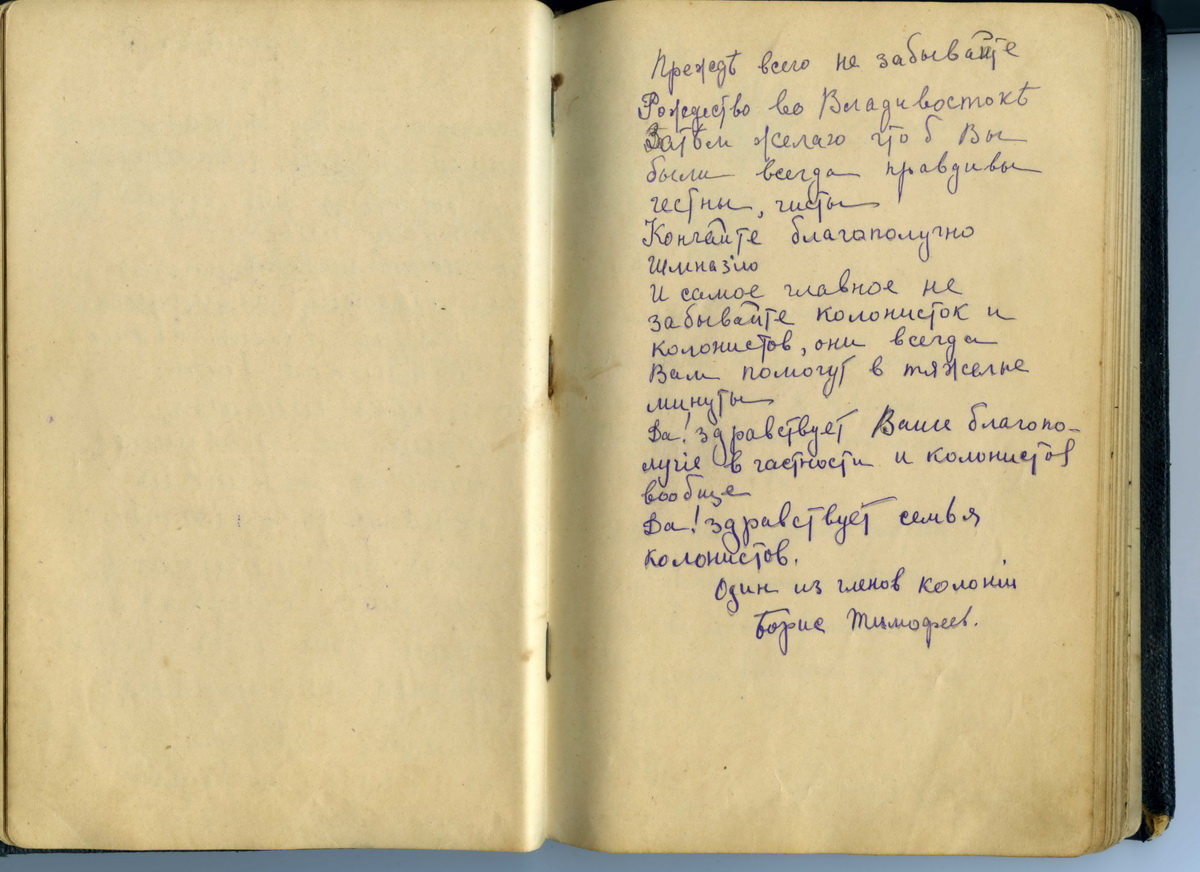 Прежде всего не забывайте
Рождество во Владивостокѣ
Затѣм желаю что б Вы
были всегда правдивы
честны, чисты
Кончайте благополучно
гимназію
И самое главное не
забывайте колонисток и
колонистов, они всегда
Вам помогут в тяжелые
минуты
Да! здравствует Ваше благопо-
лучіе в частности и колонистов
вообще
Да! здравствует семья
колонистов.
Один из членов колоніи
Борис Тимофеев.